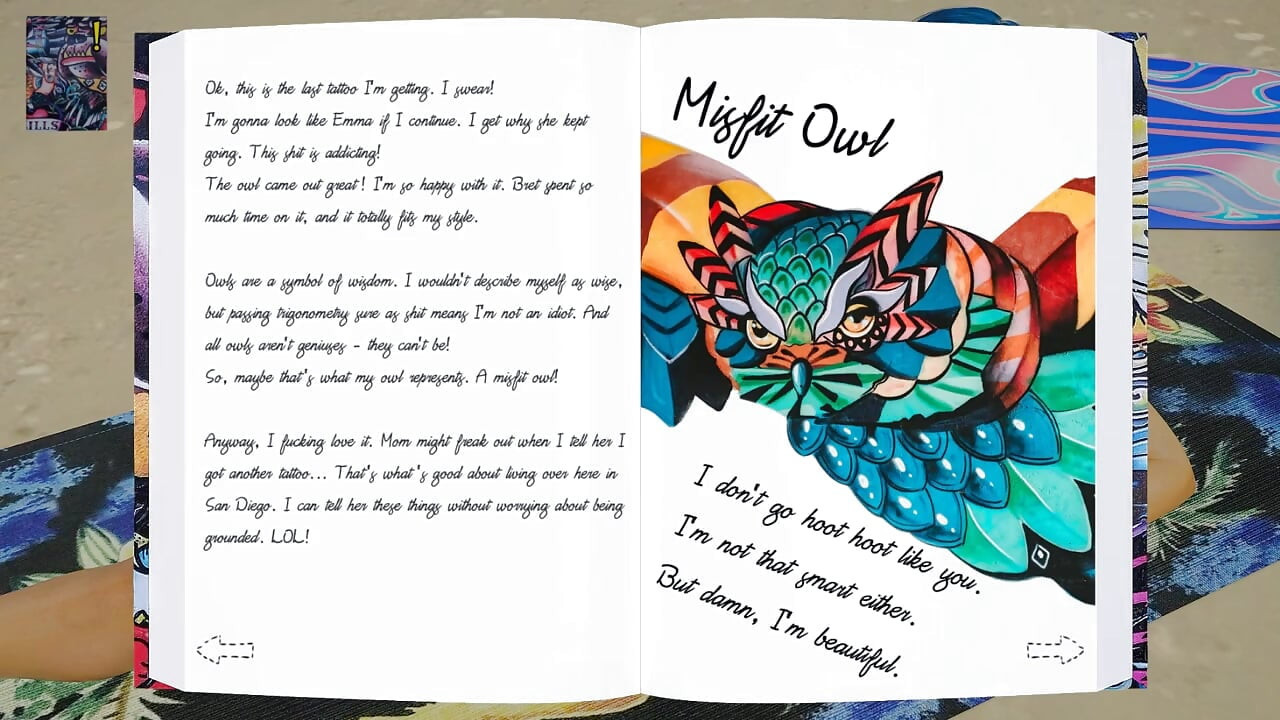 ILLS
Ok, this is the last tattoo I'm getting. I swear!
I'm gonna look like Emma if I continue. I get why she kept
going. This shit is addicting!
The owl came out great! I'm so happy with it. Bret spent so
much time on it, and it totally fits my style.
Owls are a symbol of wisdom. I wouldn't describe myself as wise,
but passing trigonometry sure as shit means I'm not an idiot. And
all owls aren't geniuses - they can't be!
So, maybe that's what my owl represents. A misfit owl!
Anyway, I fucking love it. Mom might freak out when I tell her I
got another tattoo... That's what's good about living over here in
San Diego. I can tell her these things without worrying about being
grounded. LOL!
Misfit Owl
I don't go hoot hoot like you.
I'm not that smart either.
But damn, I'm beautiful.